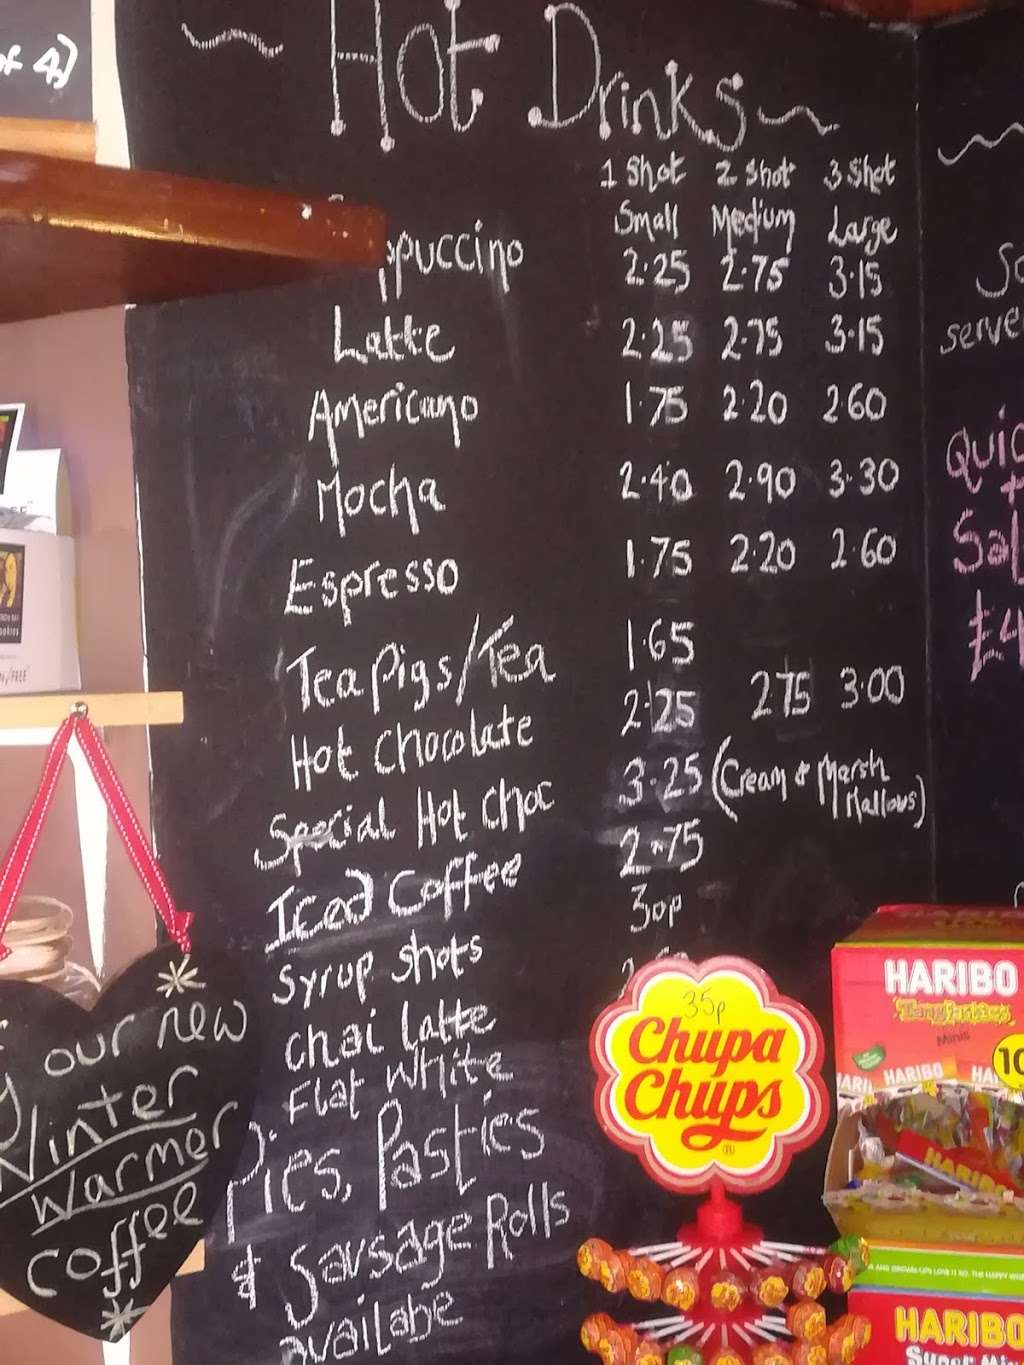 of 4)
~ Hot Drinks ~
1 Shot 2 Shot 3 Shot
Small Medium Large
ppuccino 2.25 2.75 3.15
Latte 2.25 2.75 3.15
Americano 1.75 2.20 2.60
Mocha 2.40 2.90 3.30
Espresso 1.75 2.20 2.60
Teapigs/Tea 1.65
Hot Chocolate 2.25 2.75 3.00
Special Hot Choc 3.25 (Cream & Marsh
Mallows)
Iced Coffee 2.75
Syrup Shots 30p
Chai Latte
Flat White
Pies, Pasties
& Sausage Rolls
availabe
serve
Quic
Sal
£4
our new
Winter
Warmer
coffee
35p
Chupa
Chups
HARIBO
Tangfastics
Minis
10
HARIBO
HARIBO
HARIBO
Super Mi